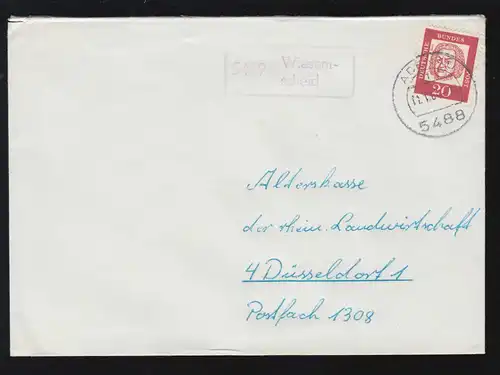 Wiesem-
scheid
DEUTSCHE BUNDES POST
20
5488
Alterskasse
der rhein. Landwirtschaft
4 Düsseldorf 1
Postfach 1308